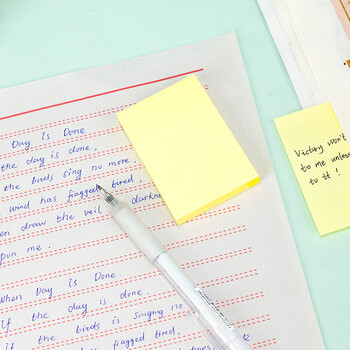 Day Is Done
the day is done.
the birds sing no more.
wind has fragged tired.
en draw the veil darkn
pon me.
When Day is Done
If the day is done
if the birds is singing no
fragged tired.
Victory won't
to me unless
to it !